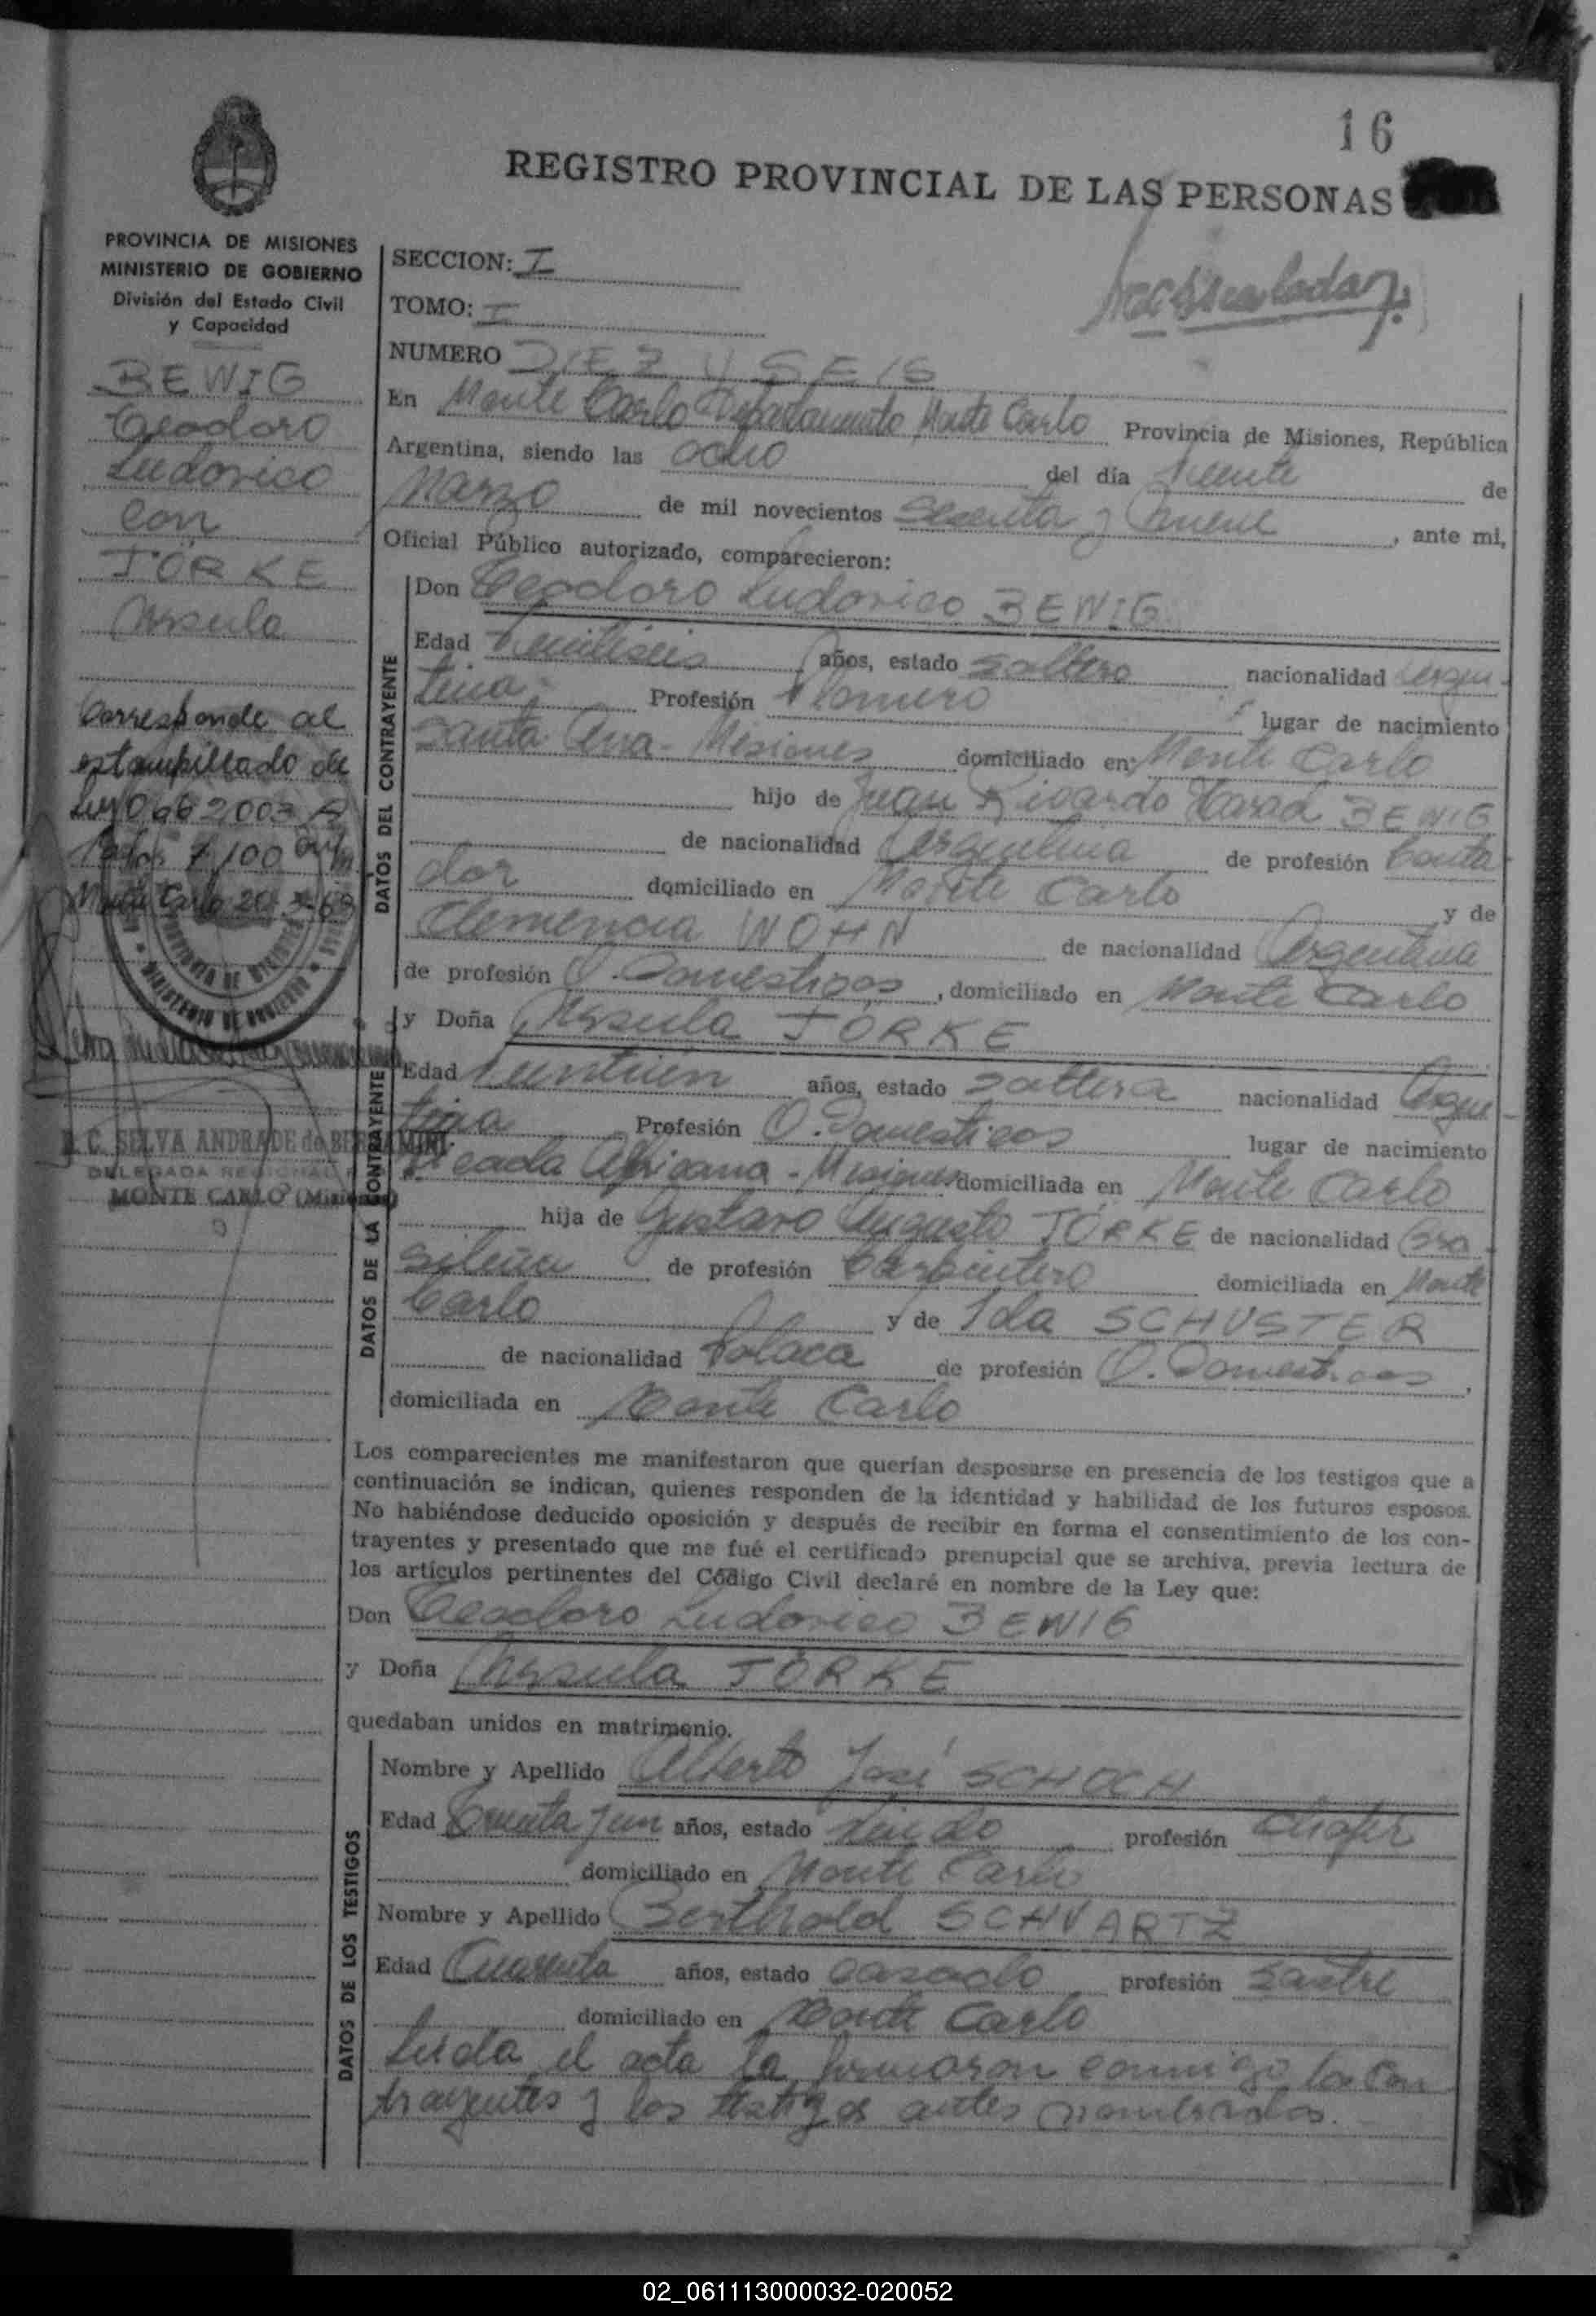 16
REGISTRO PROVINCIAL DE LAS PERSONAS
PROVINCIA DE MISIONES
MINISTERIO DE GOBIERNO
División del Estado Civil
y Capacidad
BEWIG
Teodoro
Ludovico
con
JÖRKE
Ursula
Corresponde al
estampillado de
Ley 066 2003 A
7.100
Monte Carlo 20.3.69
MINISTERIO DE GOBIERNO
SELVA ANDRADE de
DELEGADA REGIONAL
MONTE CARLO (Misiones)
SECCION: I
TOMO: I
NUMERO DIEZ Y SEIS
En Monte Carlo Departamento Monte Carlo Provincia de Misiones, República
Argentina, siendo las ocho del día veinte de
Marzo de mil novecientos sesenta y nueve, ante mi,
Oficial Público autorizado, comparecieron:
DATOS DEL CONTRAYENTE
Don Teodoro Ludovico BEWIG
Edad veintiseis años, estado soltero nacionalidad argen-
tina Profesión Plomero lugar de nacimiento
Santa Ana - Misiones domiciliado en Monte Carlo
hijo de Juan Ricardo BEWIG
de nacionalidad Argentina de profesión Conta-
dor domiciliado en Monte Carlo y de
Clemencia WOHN de nacionalidad Argentina
de profesión Q. Domesticos, domiciliado en Monte Carlo
DATOS DE LA CONTRAYENTE
y Doña Ursula JÖRKE
Edad veintiún años, estado soltera nacionalidad Argen-
tina Profesión Q. Domesticos lugar de nacimiento
Picada Africana - Misiones domiciliada en Monte Carlo
hija de Gustavo Augusto JÖRKE de nacionalidad Bra-
sileña de profesión Carpintero domiciliada en Monte
Carlo y de Ida SCHUSTER
de nacionalidad Polaca de profesión Q. Domesticos,
domiciliada en Monte Carlo
Los comparecientes me manifestaron que querían desposarse en presencia de los testigos que a
continuación se indican, quienes responden de la identidad y habilidad de los futuros esposos.
No habiéndose deducido oposición y después de recibir en forma el consentimiento de los con-
trayentes y presentado que me fué el certificado prenupcial que se archiva, previa lectura de
los artículos pertinentes del Código Civil declaré en nombre de la Ley que:
Don Teodoro Ludovico BEWIG
y Doña Ursula JÖRKE
quedaban unidos en matrimonio.
DATOS DE LOS TESTIGOS
Nombre y Apellido Alberto José SCHOCH
Edad años, estado viudo profesión chofer
domiciliado en Monte Carlo
Nombre y Apellido Berthold SCHVARTZ
Edad Cuarenta años, estado casado profesión Sastre
domiciliado en Monte Carlo
Leida el acta la firmaron conmigo los con
trayentes y los testigos antes nombrados.
02_061113000032-020052